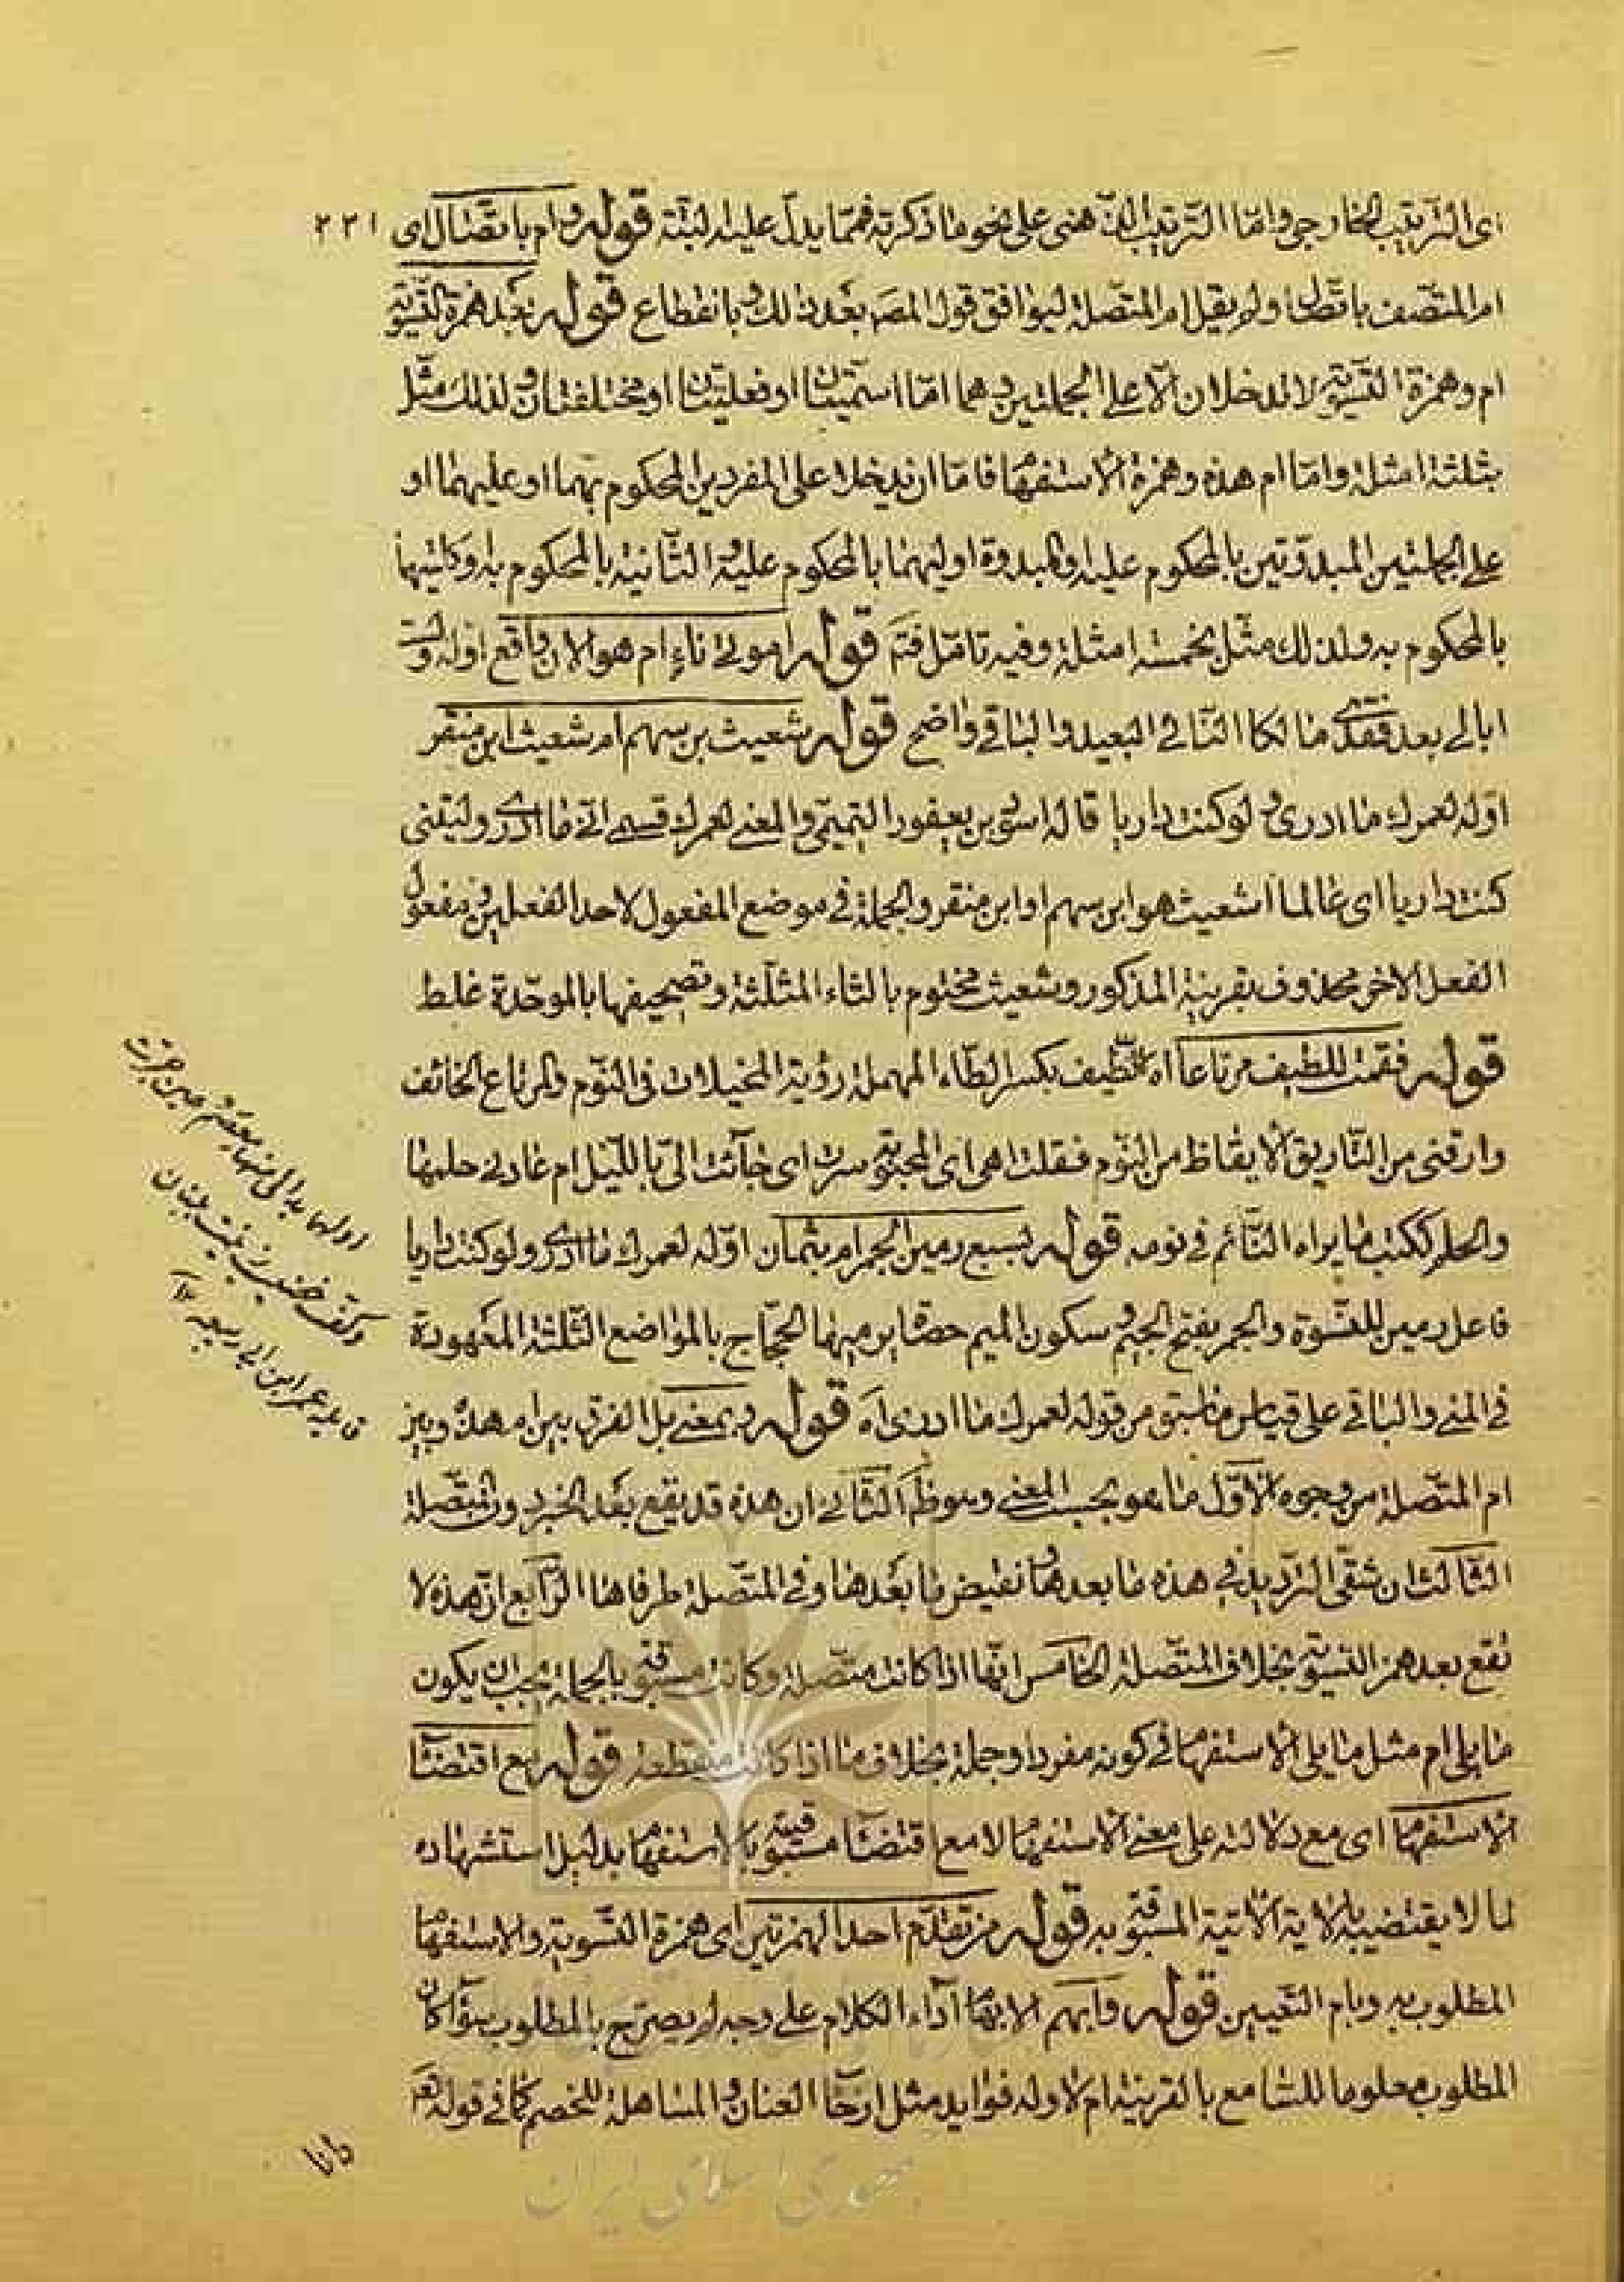 اى الترتيب الخارجى واما الترتيب الذهنى على نحو ما ذكرته فمما يدل عليه البتة قوله وام باتصال اى ٢٢١
ام المتصف باتصال ولم يقل ام المتصلة ليوافق قول المصـ بعد ذلك وبانقطاع قوله بعد همزة التسوية
ام وهمزة التسوية لا تدخلان الا على الجملتين وهما اما اسميتان او فعليتان او مختلفتان ولذلك مثل
بثلثة امثلة واما ام هذه وهمزة الاستفهام فاما ان يدخلا على المفردين المحكوم بهما او عليهما او
على الجملتين المبدوتين بالمحكوم عليه والمبدوة اوليهما بالمحكوم عليه والثانية بالمحكوم به وكلتيهما
بالمحكوم به ولذلك مثل بخمسة امثلة وفيه تامل فتم قوله اموتى ناء ام هو الان واقع اوله ولست
ابالى بعد فقدى مالكا النائى البعيد والباقى واضح قوله شعيث بن سهم ام شعيث ابن منقر
اوله لعمرك ما ادرى ولو كنت داريا قاله اسود بن يعفور التميمى والمعنى لعمرك قسمى انى ما ادرى وليتنى
كنت داريا اى عالما اشعيث هو ابن سهم او ابن منقر والجملة فى موضع المفعول لاحد الفعلين ومفعول
الفعل الاخر محذوف بقرينة المذكور وشعيث مختوم بالثاء المثلثة وتصحيفها بالموحدة غلط
قوله فقمت للطيف مرتاعا اه الطيف بكسر الطاء المهملة رؤية المخيلات فى النوم والمرتاع الخائف
وارقنى من التاريق الايقاظ من النوم فقلت اهى اى المحبوبة سرت اى جائت الى بالليل ام عادنى حلمها
والحلم ككتب ما يراه النائم فى نومه قوله بسبع رمين الجمر ام بثمان اوله لعمرك ما ادرى ولو كنت داريا
فاعل رمين للنسوة والجمر بفتح الجيم وسكون الميم حصا يرميها الحجاج بالمواضع الثلثة المعهودة
فى المنى والباقى على قياس ما سبق من قوله لعمرك ما ادرى اه قوله وبمعنى بل الفرق بين ام هذه وبين
ام المتصلة من وجوه الاول ما هو بحسب المعنى وهو ظ الثانى ان هذه قد يقع بعد الخبر دون المتصلة
الثالث ان شقى الترديد فى هذه ما بعدها ونقيض ما بعدها وفى المتصلة طرفاها الرابع ان هذه لا
تقع بعد همز التسوية بخلاف المتصلة الخامس انها اذا كانت متصلة وكانت مسبوقة بالجملة يجب ان يكون
ما يلى ام مثل ما يلى الاستفهام فى كونه مفردا وجملة بخلاف ما اذا كانت منقطعة قوله مع اقتضاء
الاستفهام اى مع دلالته على معنى الاستفهام لا مع اقتضاء مسبوقيته بالاستفهام بدليل استشهاده
لما لا يقتضيه بالاية الاتية المسبوقة به قوله من تقدم احد الهمزتين اى همزة التسوية والاستفهام
المطلوب به وبام التعيين قوله وابهم الابهام اداء الكلام على وجه لم يصرح بالمطلوب سواء كان
المطلوب معلوما للسامع بالقرينة ام لا وله فوايد مثل ارخاء العنان والمساهلة للخصم كما فى قوله تعـ
وانا
اولها بدا لى منها معصم حين جمرت
وكف خضيب زينت ببنان
قايله عمر ابن ابى ربيعه
جمهوری اسلامی ایران